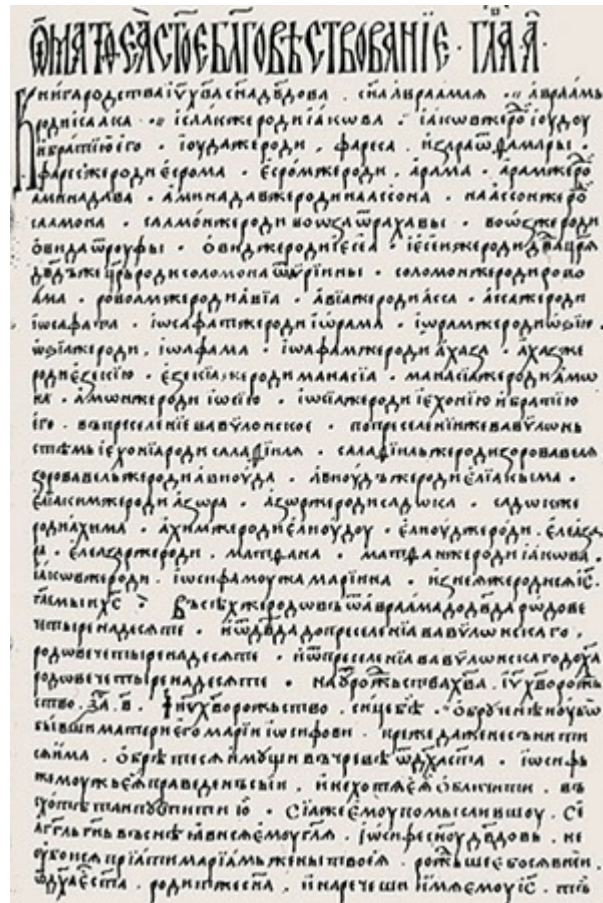 Ѿ МАТѲЕꙖ СТ҃ОЕ БЛ҃ГОВѢСТВОВАНЇЕ · ГЛАⷡ҇ А҃ ·
Книга родства і҆у҃ хв҃а сн҃а дв҃дова . сн҃а авраамля ·:· авраамъ
роди ісаака ·:· ісаакже роди іакова · іаковже роⷣ іоудоу
и братїю его · іоудаже роди , фареса . и зара ѿ фамары ·
фаресже роди есрома · есромже роди , арама . арамже роⷣ
аминадава · аминадавже роди наассона . наассонже роⷣ
саамона . саамонже роди воѡза ѿ рахавы · воѡзже роди
овида ѿ роуфы · овидже роди іесеа · іесеиже роди дв҃да цр҃я
дв҃дъже цр҃ь роди соломона ѿ ѹрїины · соломонже роди рово
ама · ровоамже роди авїа · авїаже роди асса · ассаже роди
іѡсафата . іѡсафатже роди іѡрама · іѡрамже роди ѡзїю ·
ѡзїаже роди , іѡафама · іѡафамже роди ахаза · ахазже
роди езекїю · езекїаже роди манасїа · манасїаже роди амѡ
на · амѡнже роди іѡсїю · іѡсїаже роди іехонїю и братїю
его · въ преселенїе вавѵлонское · по преселенїиже вавѵлонь
стѣмь іехонїа роди салафїиля · салафїильже роди зоровавеля
зоровавельже роди авиоуда · авиоудъже роди елїакыма ·
елїакимже роди азора · азорже роди садѡка . садѡкже
роди ахима · ахимже роди елиоудоу · елиоуджероди . елеаза
ра . елеазарже роди , матфана · матфанже роди іакова
іаковже роди . іѡсифа моужа марїина · из неяже родися іс҃
гл҃емыи хс҃ · Въсѣхже родовъ ѿ авраама до дв҃да родове
четыренадесяте · и ѿ дв҃да до преселенїа вавѵлѡнскаго ,
родове четыренадесяте · и ѿ преселенїа вавѵлѡнскаго до ха҃
родове четыренадесяте · на ѹроⷤство хв҃а . іу҃ хв҃о рожь
ство . за҃ . в҃ . Іу҃ хв҃о рожьство . сице бѣ · обрученѣ иоубѡ
бывши матери его марїи іѡсифови . преже даже не сънити
ся има . обрѣтеся имущи въ чревѣ ѿ дх҃а ст҃а · іѡсифь
же моужь ея праведенъ сыи , и не хотя ея обличити . въ
схотѣ таи пустити ю · Сїаже емоу помысливъшоу . се
агг҃лъ гн҃ь въ снѣ явися емоу гл҃я . іѡсифе сн҃оу дв҃довъ . не
оубоися прїати марїамь жены твоея . рожьшееб ося в неи
ѿ дх҃а е ст҃а . родитже сн҃а , и наречеши имя емоу іс҃ . тъи